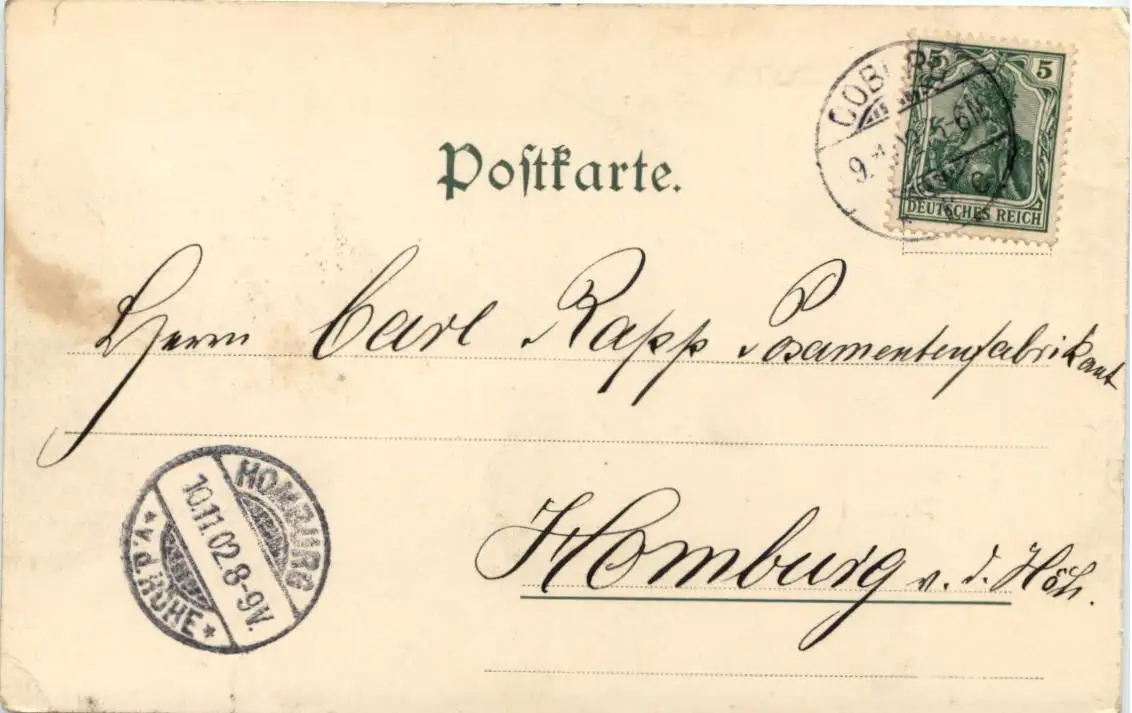 Postkarte.
5 5
DEUTSCHES REICH
COBURG
9. 5-6N
Herrn Carl Rapp Posamentenfabrikant
Homburg v. d. Höh.
HOMBURG
10.11.02.8-9V.
* v.d.HÖHE *